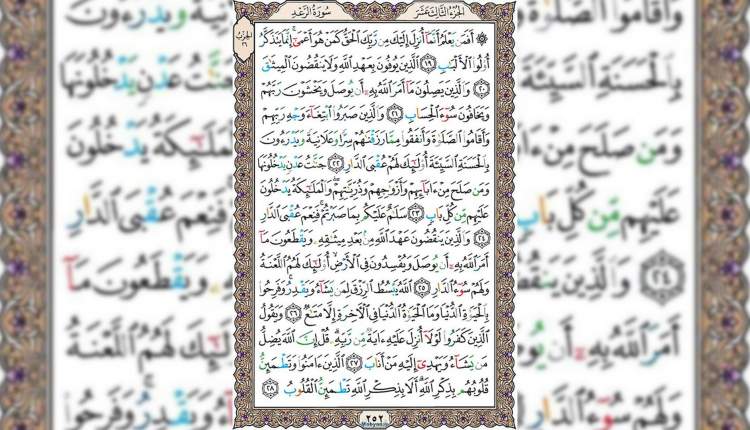 سُورَةُ الرَّعْدِ
الجُزْءُ الثَّالِثَ عَشَرَ
الحِزْبُ ٢٦
۞ أَفَمَن يَعْلَمُ أَنَّمَآ أُنزِلَ إِلَيْكَ مِن رَّبِّكَ الْحَقُّ كَمَنْ هُوَ أَعْمَىٰٓ ۚ إِنَّمَا يَتَذَكَّرُ
أُو۟لُوا۟ الْأَلْبَٰبِ ﴿١٩﴾ الَّذِينَ يُوفُونَ بِعَهْدِ اللَّهِ وَلَا يَنقُضُونَ الْمِيثَٰقَ
﴿٢٠﴾ وَالَّذِينَ يَصِلُونَ مَآ أَمَرَ اللَّهُ بِهِۦٓ أَن يُوصَلَ وَيَخْشَوْنَ رَبَّهُمْ
وَيَخَافُونَ سُوٓءَ الْحِسَابِ ﴿٢١﴾ وَالَّذِينَ صَبَرُوا۟ ابْتِغَآءَ وَجْهِ رَبِّهِمْ
وَأَقَامُوا۟ الصَّلَوٰةَ وَأَنفَقُوا۟ مِمَّا رَزَقْنَٰهُمْ سِرًّا وَعَلَانِيَةً وَيَدْرَءُونَ
بِالْحَسَنَةِ السَّيِّئَةَ أُو۟لَٰٓئِكَ لَهُمْ عُقْبَى الدَّارِ ﴿٢٢﴾ جَنَّٰتُ عَدْنٍ يَدْخُلُونَهَا
وَمَن صَلَحَ مِنْ ءَابَآئِهِمْ وَأَزْوَٰجِهِمْ وَذُرِّيَّٰتِهِمْ ۖ وَالْمَلَٰٓئِكَةُ يَدْخُلُونَ
عَلَيْهِم مِّن كُلِّ بَابٍ ﴿٢٣﴾ سَلَٰمٌ عَلَيْكُم بِمَا صَبَرْتُمْ ۚ فَنِعْمَ عُقْبَى الدَّارِ
﴿٢٤﴾ وَالَّذِينَ يَنقُضُونَ عَهْدَ اللَّهِ مِنۢ بَعْدِ مِيثَٰقِهِۦ وَيَقْطَعُونَ مَآ
أَمَرَ اللَّهُ بِهِۦٓ أَن يُوصَلَ وَيُفْسِدُونَ فِى الْأَرْضِ ۙ أُو۟لَٰٓئِكَ لَهُمُ اللَّعْنَةُ
وَلَهُمْ سُوٓءُ الدَّارِ ﴿٢٥﴾ اللَّهُ يَبْسُطُ الرِّزْقَ لِمَن يَشَآءُ وَيَقْدِرُ ۚ وَفَرِحُوا۟
بِالْحَيَوٰةِ الدُّنْيَا وَمَا الْحَيَوٰةُ الدُّنْيَا فِى الْءَاخِرَةِ إِلَّا مَتَٰعٌ ﴿٢٦﴾ وَيَقُولُ
الَّذِينَ كَفَرُوا۟ لَوْلَآ أُنزِلَ عَلَيْهِ ءَايَةٌ مِّن رَّبِّهِۦ ۗ قُلْ إِنَّ اللَّهَ يُضِلُّ
مَن يَشَآءُ وَيَهْدِىٓ إِلَيْهِ مَنْ أَنَابَ ﴿٢٧﴾ الَّذِينَ ءَامَنُوا۟ وَتَطْمَئِنُّ
قُلُوبُهُم بِذِكْرِ اللَّهِ ۗ أَلَا بِذِكْرِ اللَّهِ تَطْمَئِنُّ الْقُلُوبُ ﴿٢٨﴾
٢٥٢